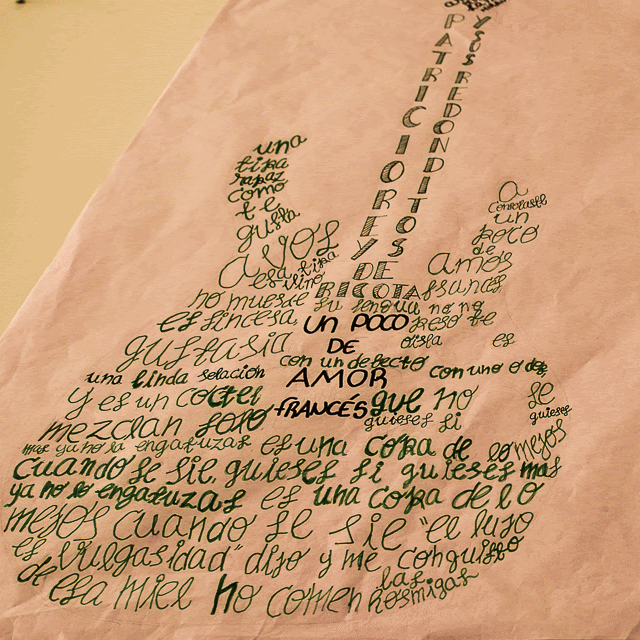 PATRICIO REY
Y SUS REDONDITOS
DE
RICOTA
una
tipa
rapaz
como
te
gusta
a vos
esa tipa
vino
a
consolarte
un
poco
de
amor
francés
no muerde su lengua no no
es sincera
UN POCO
DE
AMOR
FRANCÉS
pero te
gustaría oirla es
una linda selación con un defecto con uno o dos
y es un coctel que no se
mezclan solo quieres si quieres
mas ya no la engatuzas es una copa de lo mejos
cuando se sie, quieses si quieses mas
ya no lo engatuzas es una copa de lo
mejos cuando se sie "el lujo
es vulgasidad" dijo y me conquisto
de esa miel no comen las
hosmigas